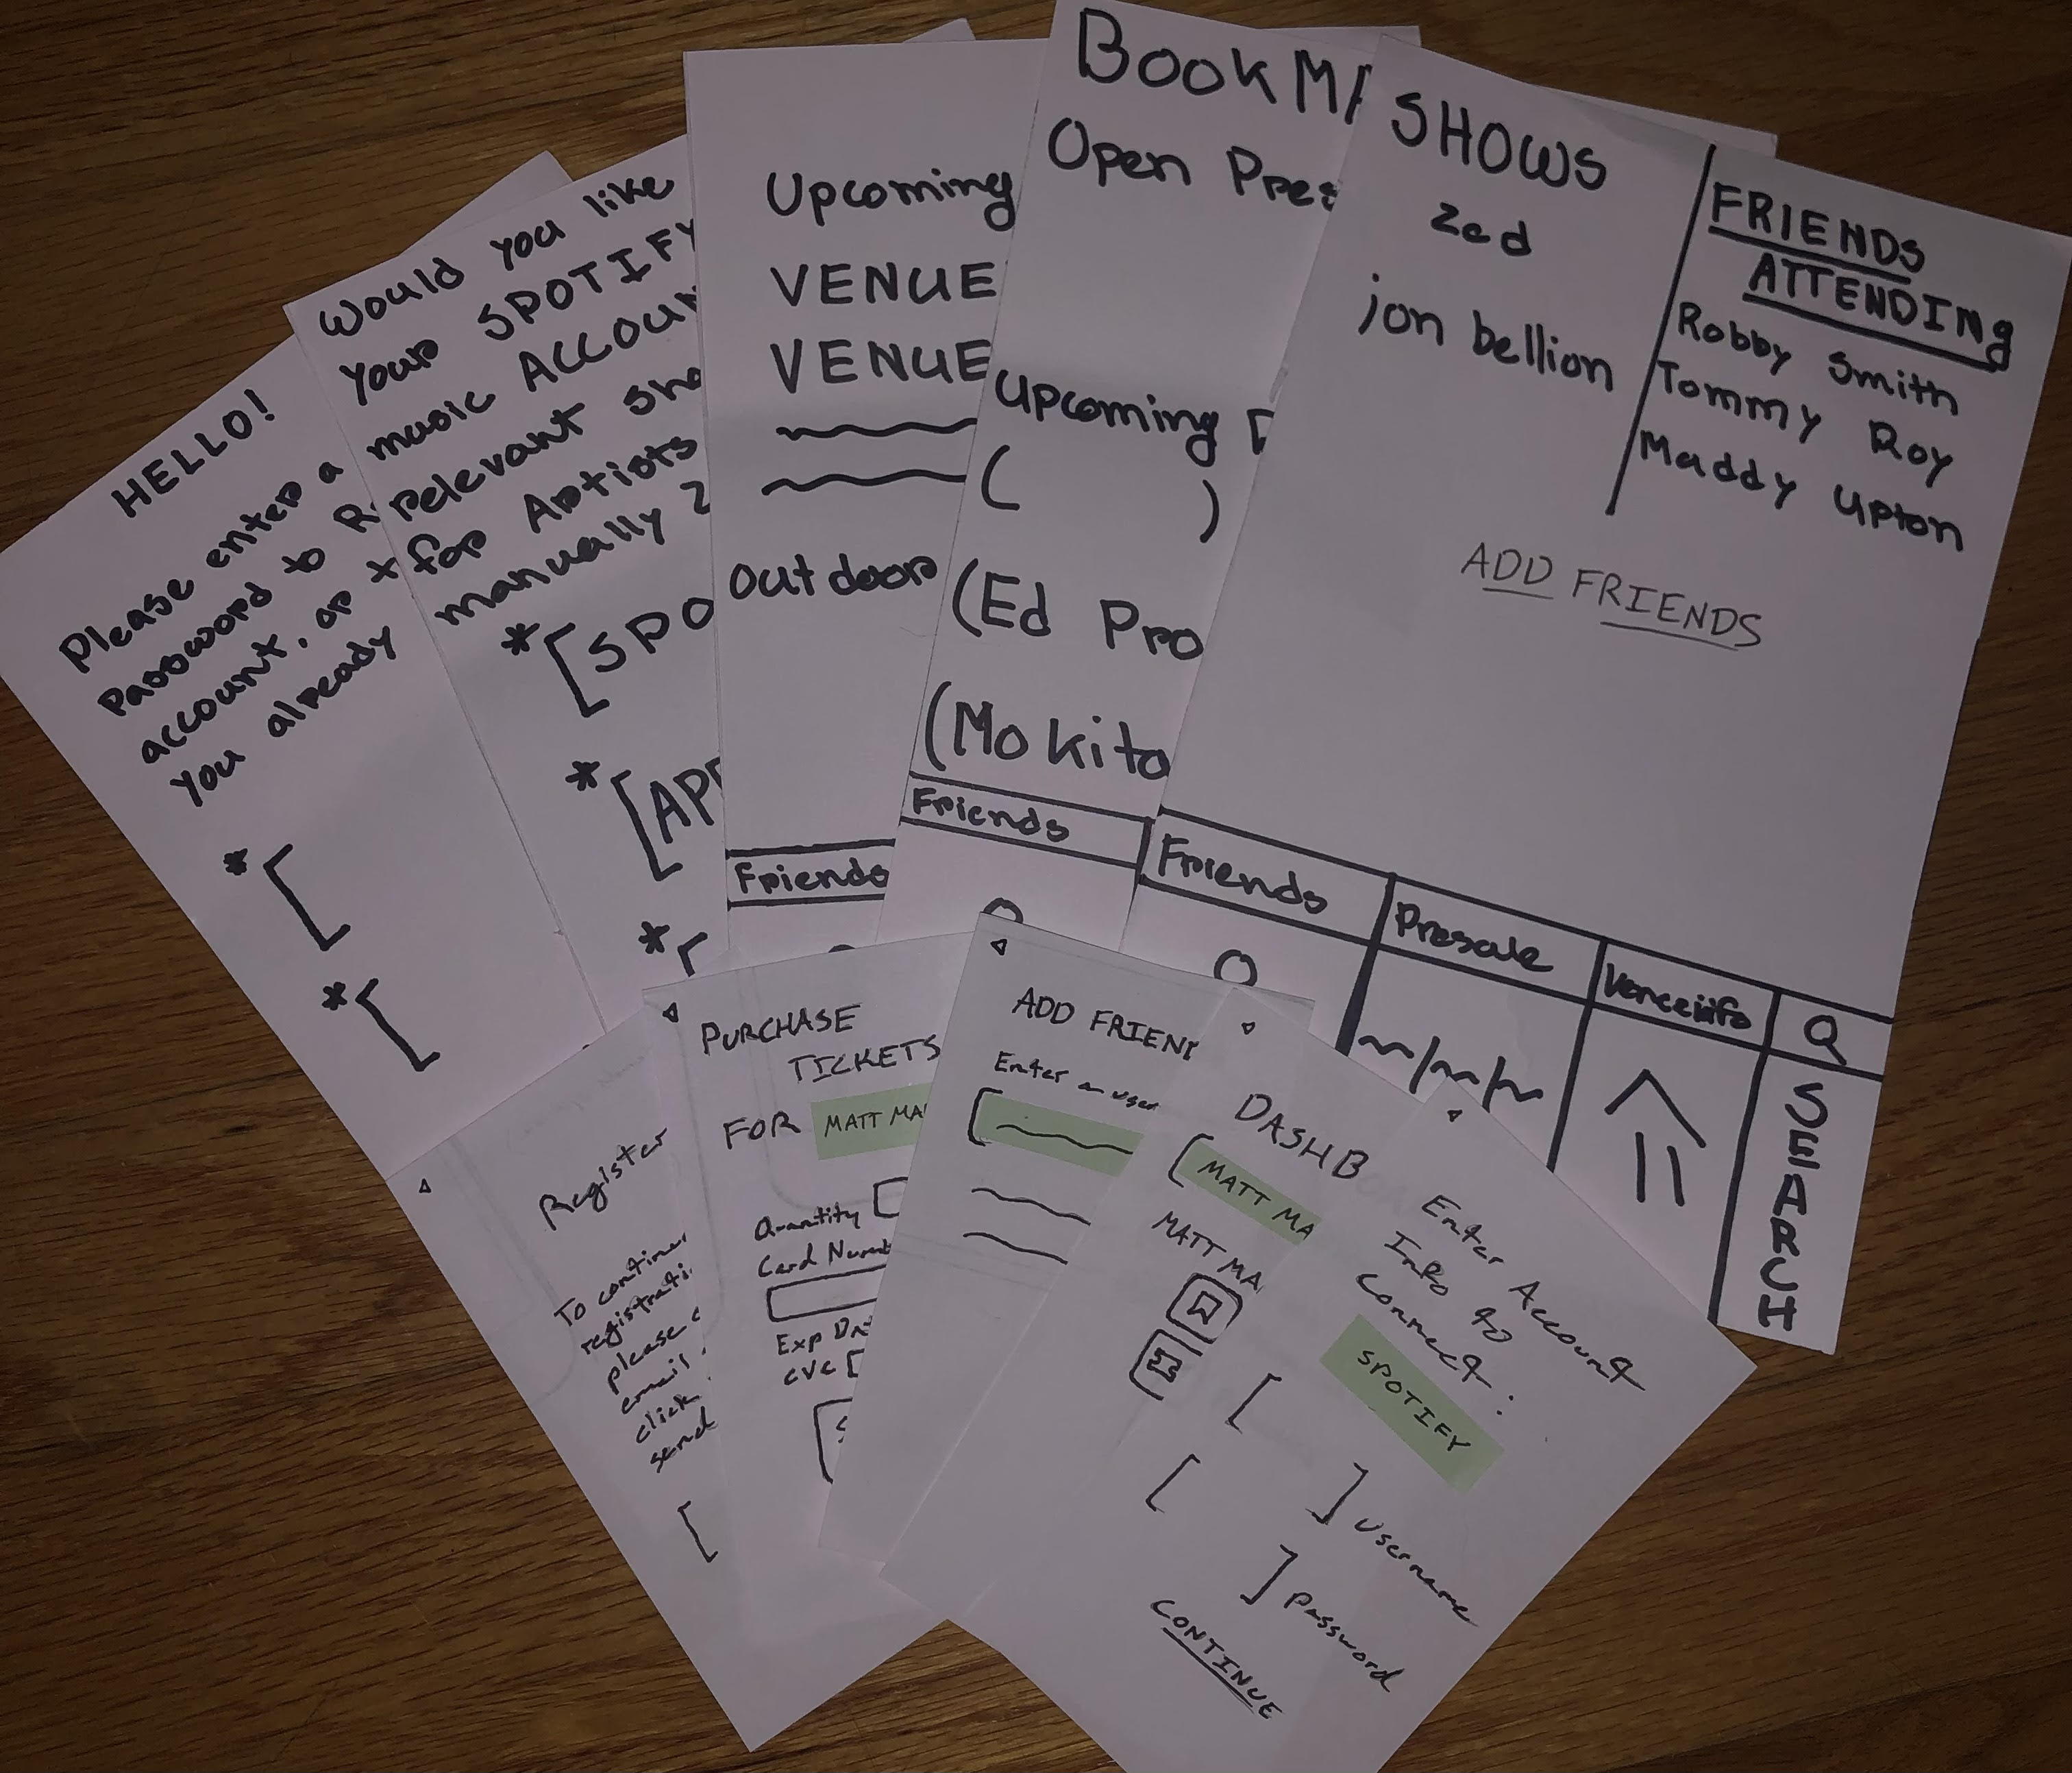 HELLO!
Please enter a
password to R
account. or x
you already
*[
*[
Would you like
your SPOTIFY
music ACCOUN
relevant sho
for Artists
manually
*[SPO
*[AP
*[
Upcoming
VENUE
VENUE
outdoor
Friends
BookMA
Open Pres
Upcoming D
( )
(Ed Pro
(Mo Kito
Friends
SHOWS
zed
jon bellion
FRIENDS
ATTENDING
Robby Smith
Tommy Roy
Maddy Upton
ADD FRIENDS
Friends
Presale
Venue info
SEARCH
Register
To continu
registrati
please c
email
click
send
[
PURCHASE
TICKETS
FOR MATT MA
Quantity
Card Numb
Exp Dat
CVC [
ADD FRIEND
Enter a user
[
DASHB
[MATT MA
MATT MA
Enter Account
Info to
Connect:
SPOTIFY
[ ] username
[ ] password
CONTINUE